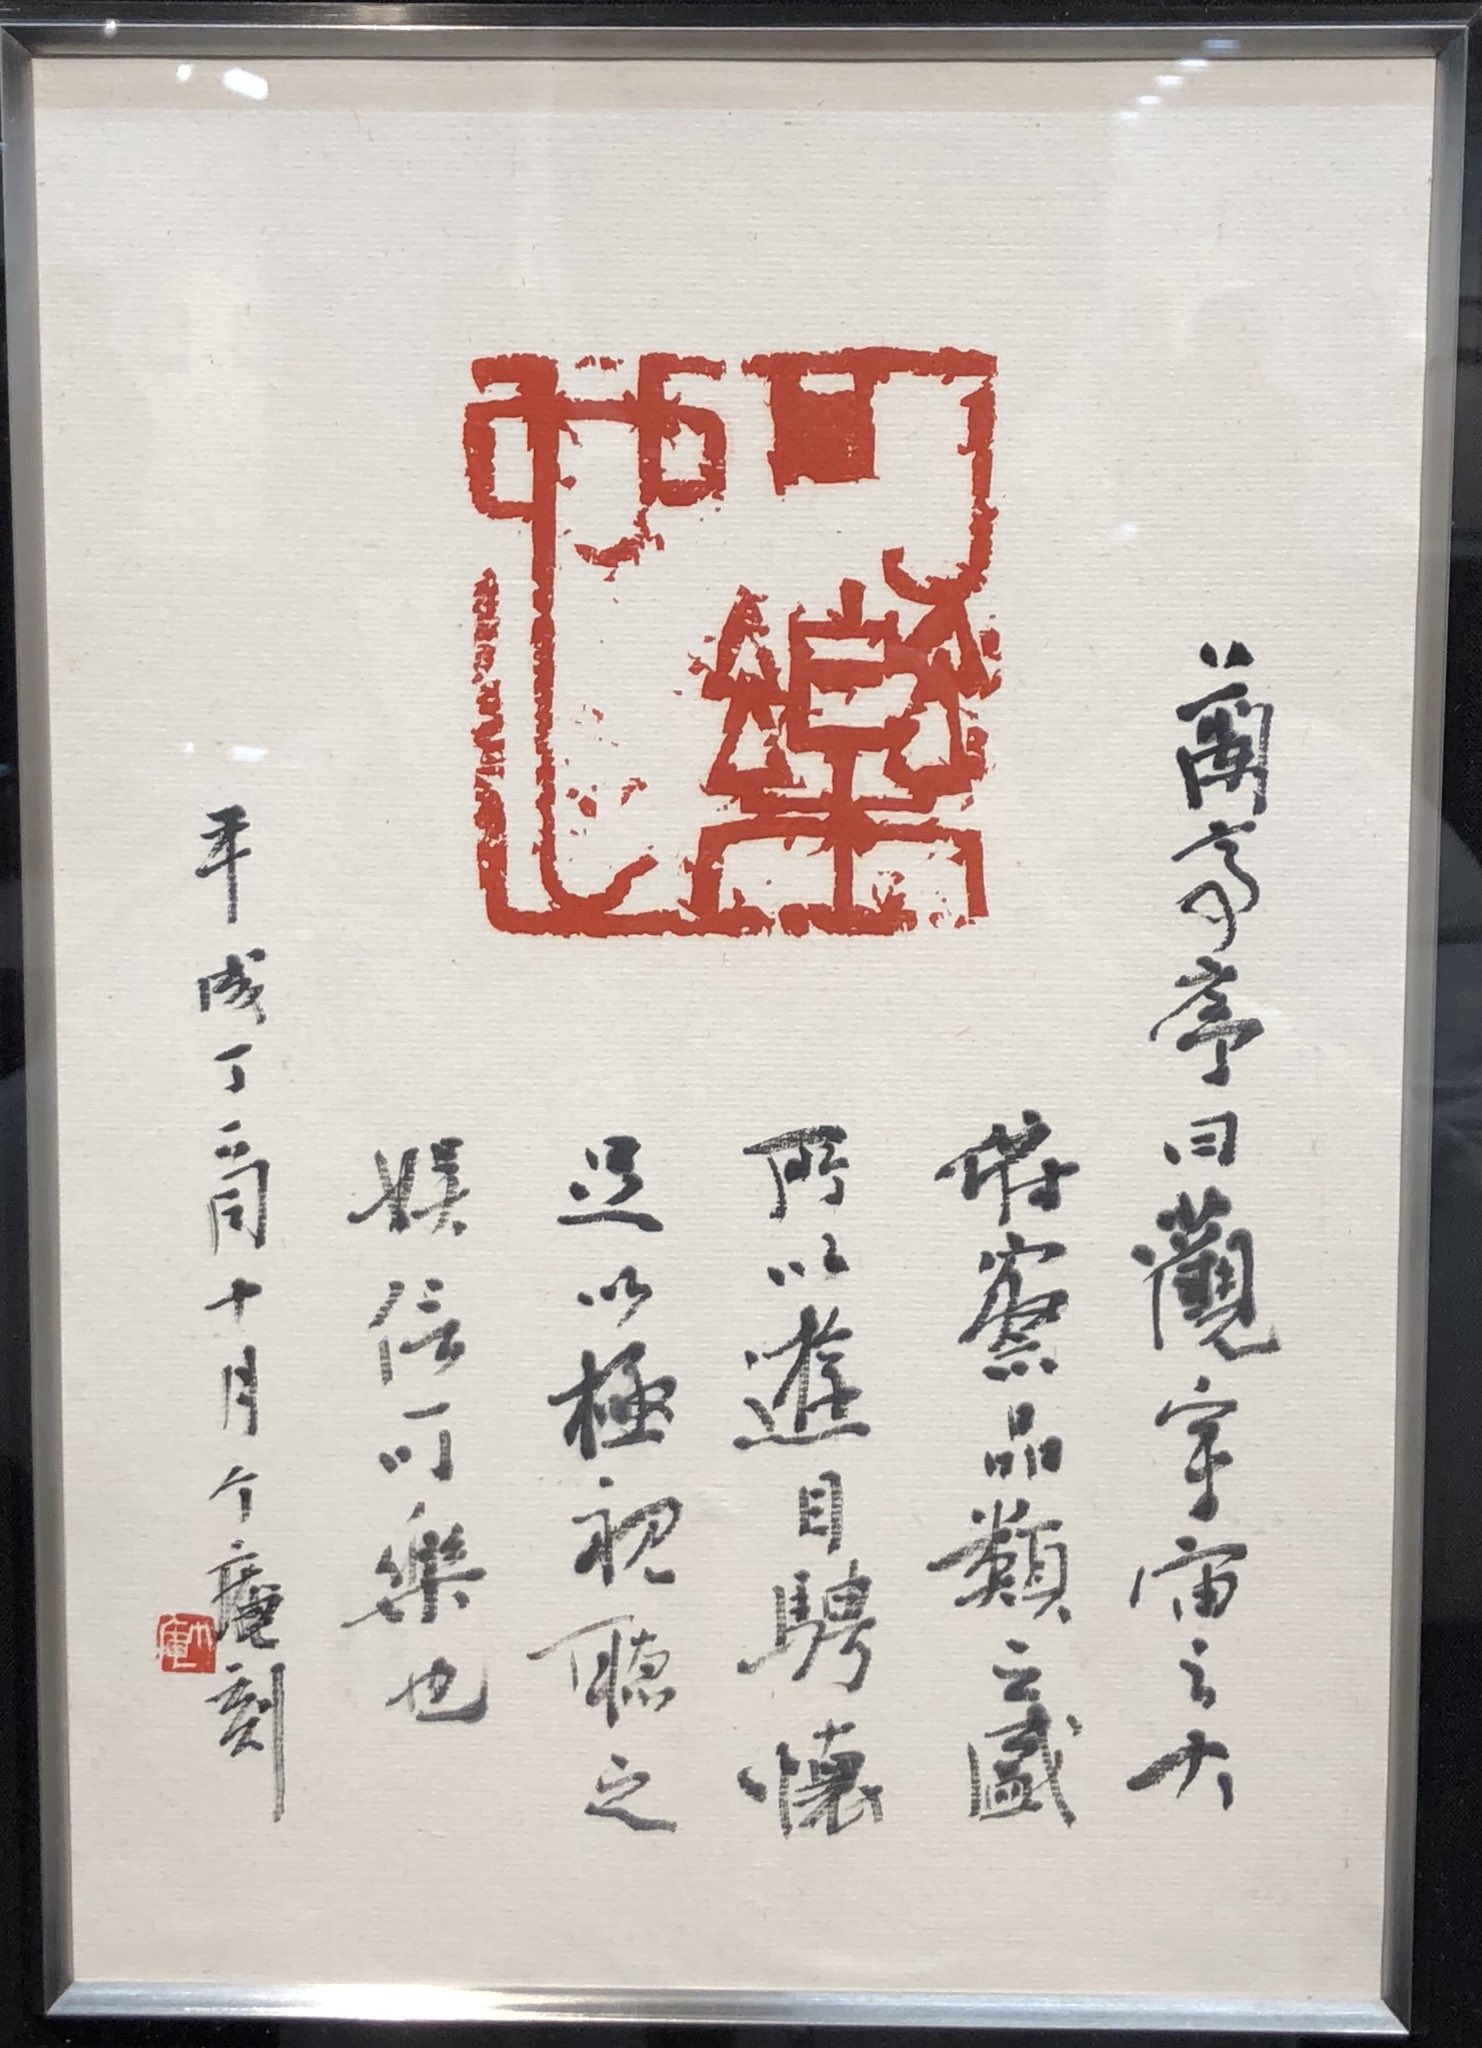 可樂也
蘭亭序曰觀宇宙之大
俯察品類之盛
所以遊目騁懷
足以極視聽之
娯信可樂也
平成丁酉十月个庵刻